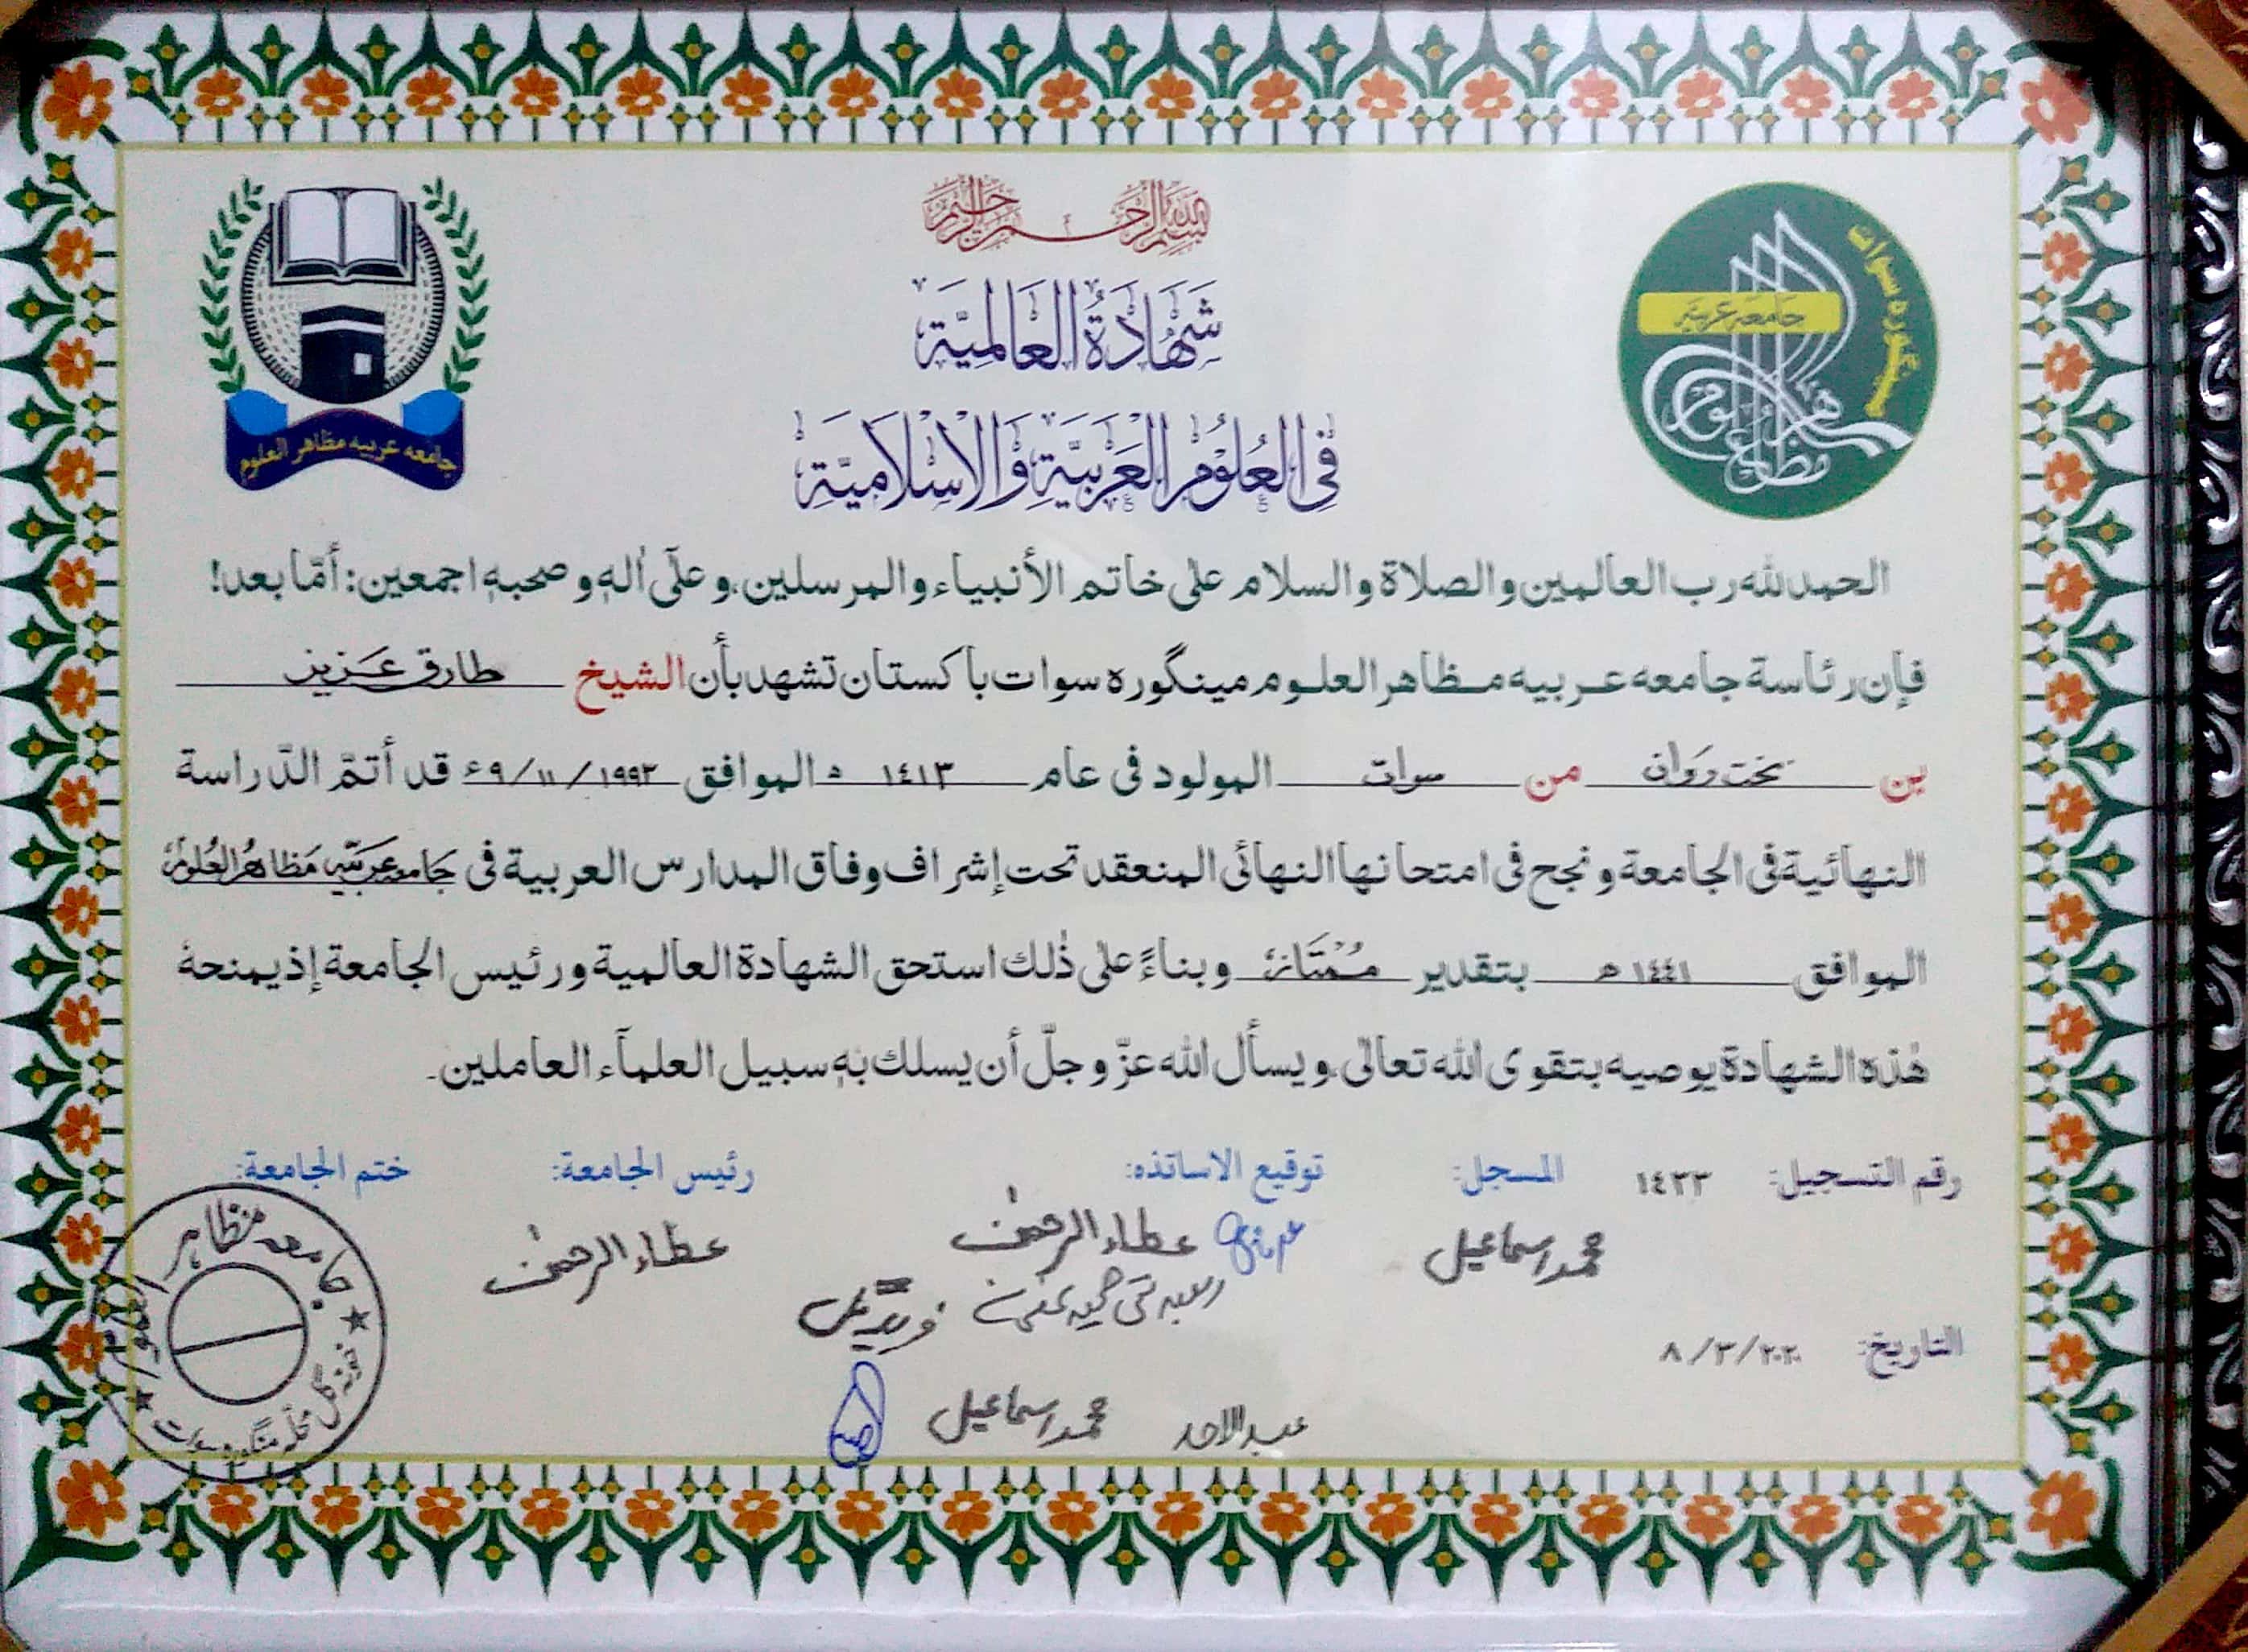 بسم الله الرحمن الرحيم
شَهَادَةُ العَالَمِيَّة
فِي العُلُوْمِ العَرَبِيَّةِ وَالْاِسْلَامِيَّةِ
جامعه عربيه مظاهر العلوم
جامعه عربيه
مظاهر العلوم
مينگوره سوات
الحمد لله رب العالمين والصلاة والسلام على خاتم الأنبياء والمرسلين، وعلىٰ اٰلهٖ وصحبهٖ اجمعين: أمّا بعد!
فإن رئاسة جامعه عربيه مظاهر العلوم مينگوره سوات باكستان تشهد بأن الشيخ طارق عَزِيز
بن بخت رَوَان من سوات المولود فى عام ١٤١٣ ھ الموافق ١٩٩٢ / ١١ / ٩ء قد أتمَّ الدّراسة
النهائية فى الجامعة ونجح فى امتحانها النهائى المنعقد تحت إشراف وفاق المدارس العربية فى جَامعه عَرَبيّه مَظاهرُ العُلوم
الموافق ١٤٤١ھ بتقدير مُمْتَاز وبناءً على ذٰلك استحق الشهادة العالمية ورئيس الجامعة إذ يمنحهٗ
هٰذه الشهادة يوصيه بتقوى الله تعالىٰ، ويسأل الله عزّ وجلّ أن يسلك بهٖ سبيل العلمآء العاملين۔
رقم التسجيل: ١٤٣٣ المسجل: توقيع الاساتذه: رئيس الجامعة: ختم الجامعة:
محمد اسماعيل عطاء الرحمٰن عطاء الرحمٰن
التاريخ: ٨/٣/٢٠٢٠
عبدالاحد محمد اسماعيل
جامعه مظاهر العلوم
گل محله منگوره سوات